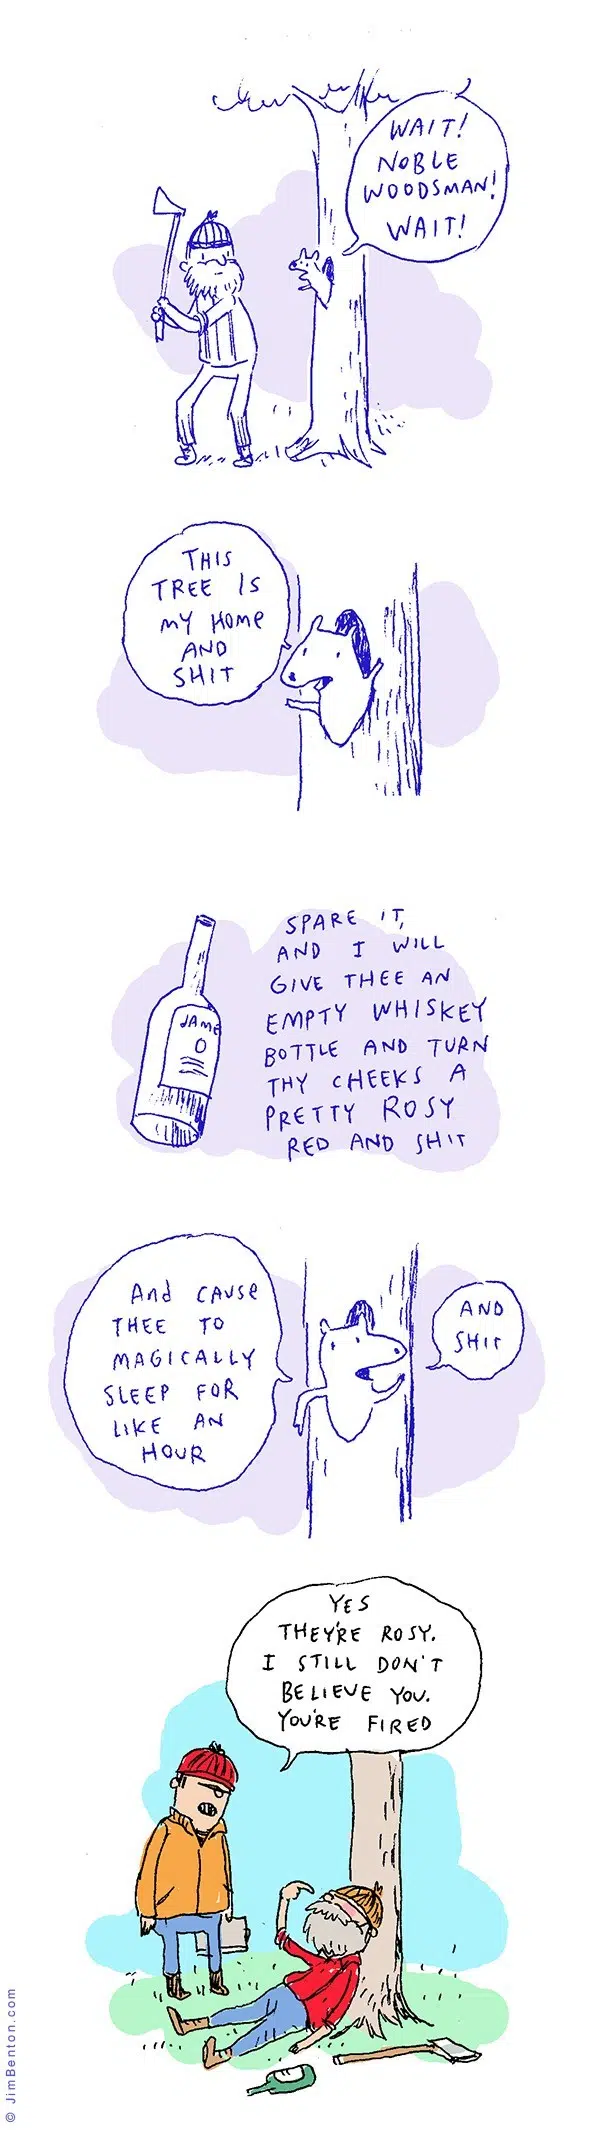 WAIT!
NOBLE
WOODSMAN!
WAIT!
THIS
TREE IS
MY HOME
AND
SHIT
SPARE IT,
AND I WILL
GIVE THEE AN
EMPTY WHISKEY
BOTTLE AND TURN
THY CHEEKS A
PRETTY ROSY
RED AND SHIT
JAME
O
And CAUSE
THEE TO
MAGICALLY
SLEEP FOR
LIKE AN
HOUR
AND
SHIT
YES
THEY'RE ROSY.
I STILL DON'T
BELIEVE YOU.
YOU'RE FIRED
© JimBenton.com